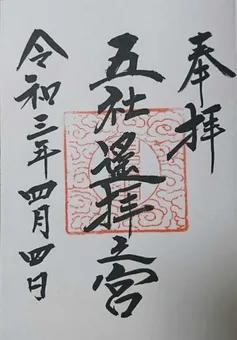 奉拝
五社遥拝之宮
令和三年四月四日